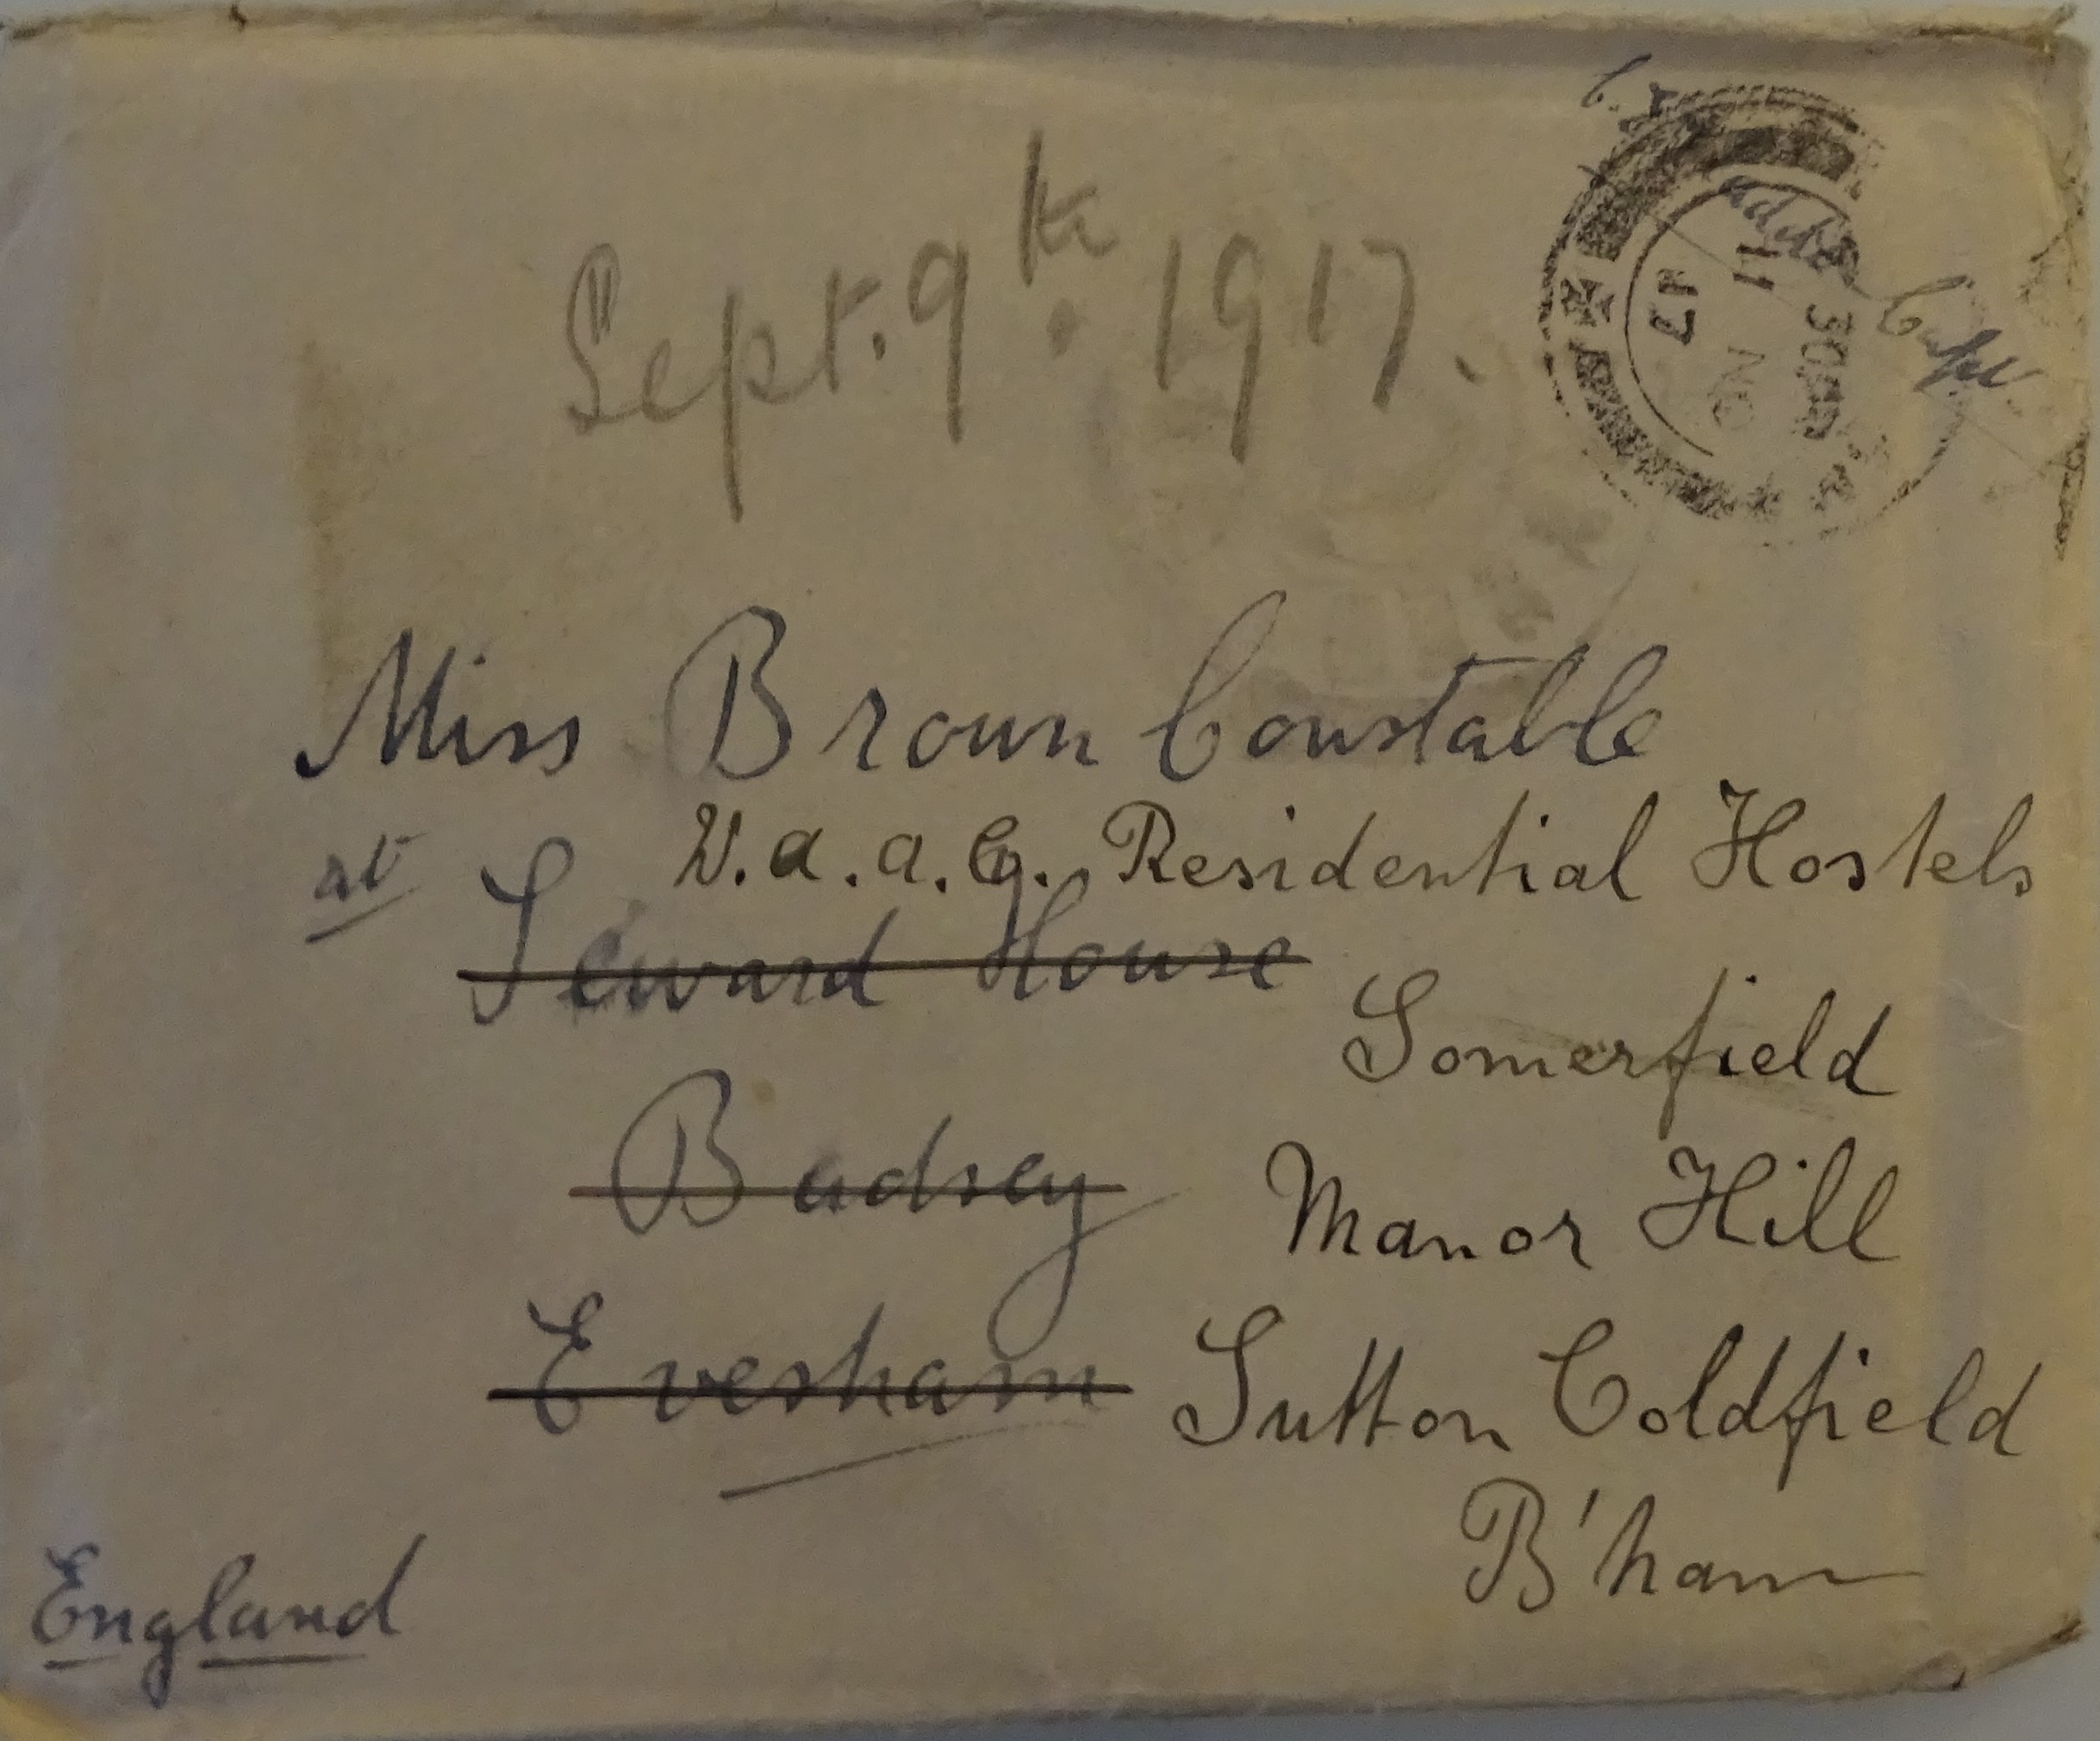 Sept. 9th. 1917.
17
11
30
Capt
Miss Broun Constable
W.a.a.C. Residential Hostels
at Seward House
Somerfield
Badsey
Manor Hill
Evesham
Sutton Coldfield
B'ham
England